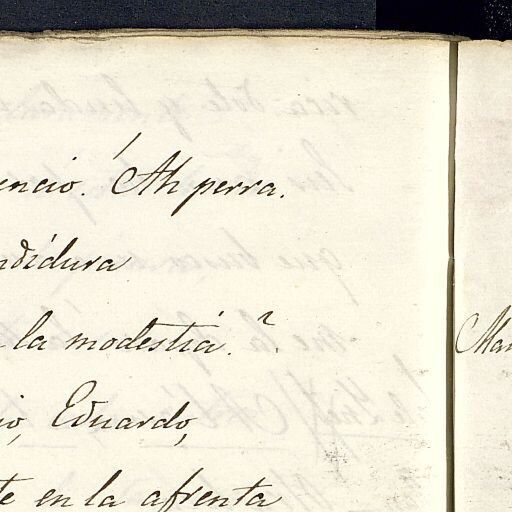 encio. ¡Ah perra.
ndidura
la modestiá?.
io, Eduardo,
te en la afrenta
Mar